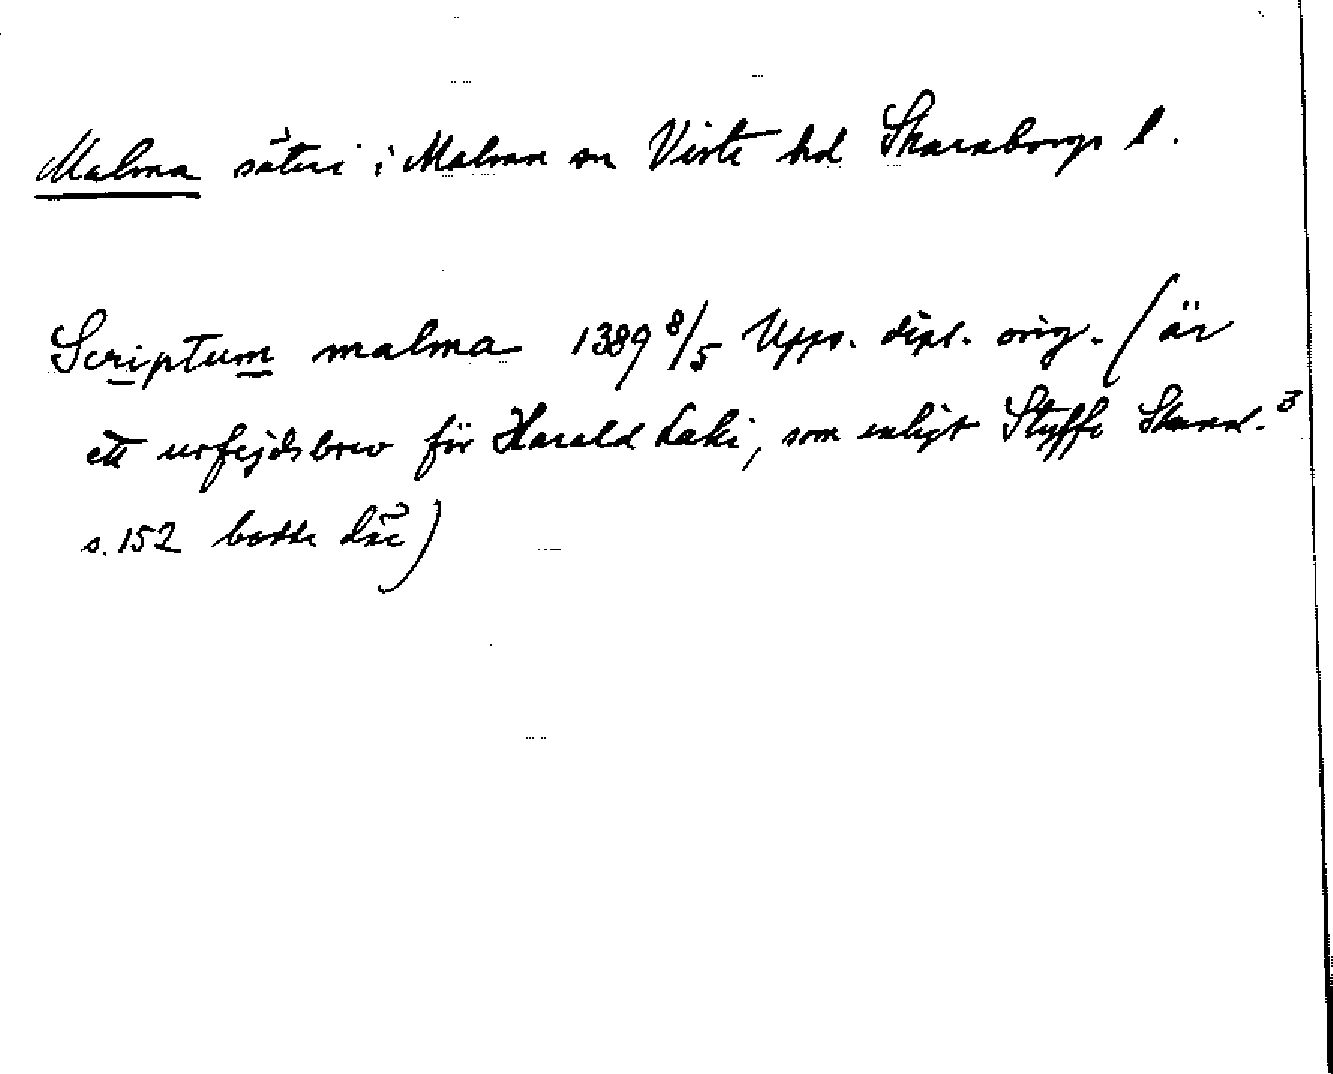 Malma säteri i Malma sn Viste hd Skaraborgs l.
Scriptum malma 1389 8/5 Upps. dipl. orig. (är
ett urfejdsbrev för Harald Laki, som enligt Styffe Skand.3
s. 152 bodde där)